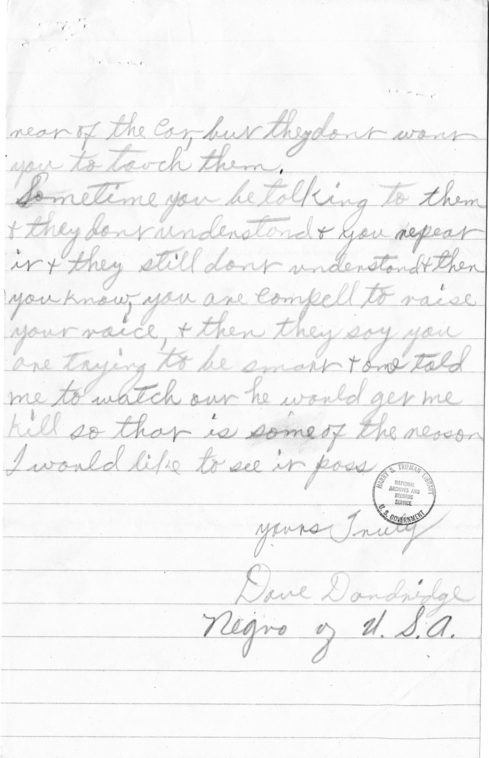 rear of the Car, but they dont want
you to touch them.
Sometime you be talking to them
& they dont understand & you repeat
it & they still dont understand & then
you know, you are compell to raise
your voice, & then they say you
are trying to be smart & one told
me to watch out he would get me
kill so that is some of the reason
I would like to see it pass
HARRY S. TRUMAN LIBRARY
NATIONAL
ARCHIVES AND
RECORDS
SERVICE
U. S. GOVERNMENT
yours Truly
Dave Dandridge
Negro of U. S. A.